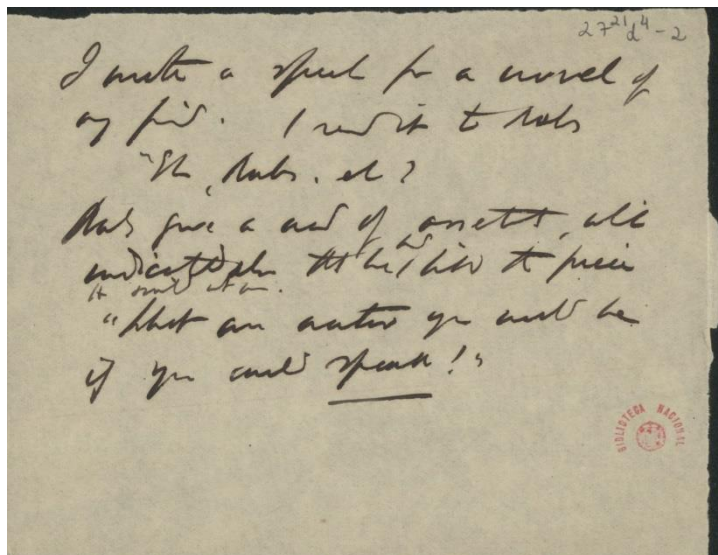 27²¹d⁴-2
I write a speech for a novel of
my friend. I read it to Rabs
"Eh, Rabs. eh?
Rabs gave a nod of assent, which
indicated also that he had liked the piece
"What an orator you would be
if you could speak!"
BIBLIOTECA NACIONAL